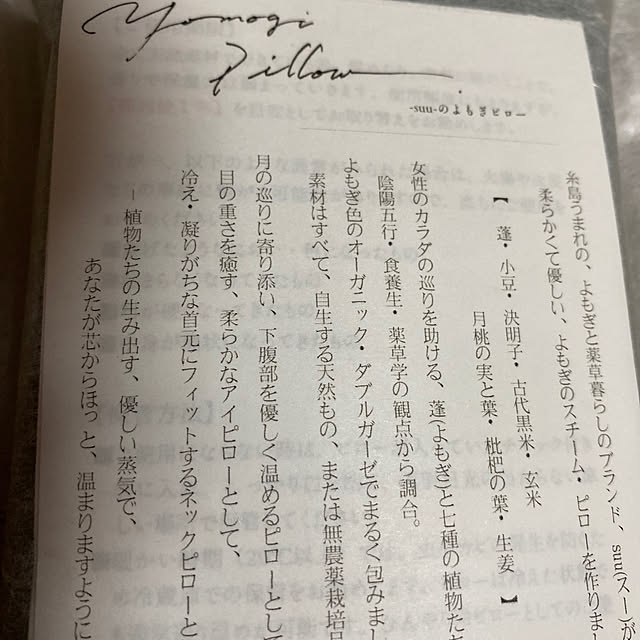 Yomogi
Pillow
-suu-のよもぎピロー
糸島うまれの、よもぎと薬草暮らしのブランド、suu(スー
柔らかくて優しい、よもぎのスチーム・ピローを作りま
【 蓬・小豆・決明子・古代黒米・玄米
月桃の実と葉・枇杷の葉・生姜 】
女性のカラダの巡りを助ける、蓬(よもぎ)と七種の植物た
陰陽五行・食養生・薬草学の観点から調合。
よもぎ色のオーガニック・ダブルガーゼでまるく包みまし
素材はすべて、自生する天然もの、または無農薬栽培品
月の巡りに寄り添い、下腹部を優しく温めるピローとして
目の重さを癒す、柔らかなアイピローとして、
冷え・凝りがちな首元にフィットするネックピローと
― 植物たちの生み出す、優しい蒸気で、
あなたが芯からほっと、温まりますように